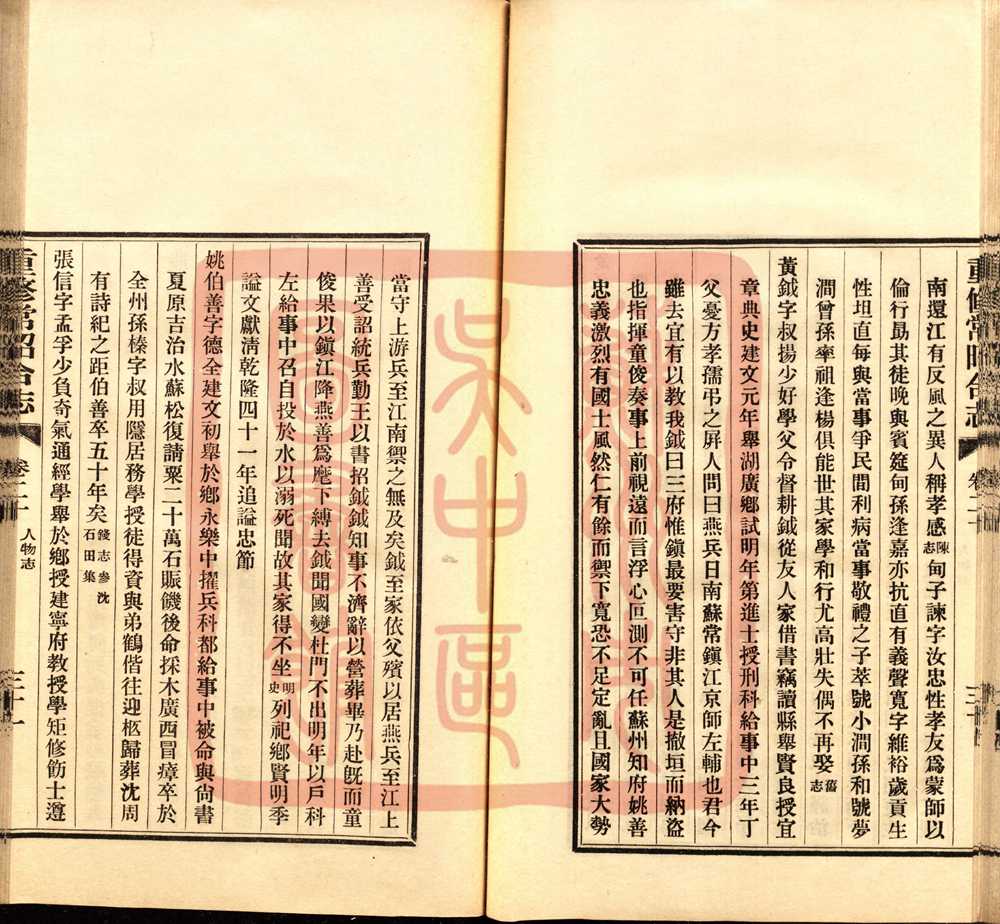 重修常昭合志
卷二十
三十
南還江有反風之異人稱孝感陳志甸子諫字汝忠性孝友爲蒙師以
倫行勗其徒晚與賓筵甸孫逢嘉亦抗直有義聲寬字維裕歲貢生
性坦直每與當事爭民間利病當事敬禮之子萃號小澗孫和號夢
澗曾孫率祖逢楊俱能世其家學和行尤高壯失偶不再娶舊志
黃鉞字叔揚少好學父令督耕鉞從友人家借書竊讀縣舉賢良授宜
章典史建文元年舉湖廣鄉試明年第進士授刑科給事中三年丁
父憂方孝孺弔之屏人問曰燕兵日南蘇常鎭江京師左輔也君今
雖去宜有以敎我鉞曰三府惟鎭最要害守非其人是撤垣而納盜
也指揮童俊奏事上前視遠而言浮心叵測不可任蘇州知府姚善
忠義激烈有國士風然仁有餘而禦下寬恐不足定亂且國家大勢
當守上游兵至江南禦之無及矣鉞至家依父殯以居燕兵至江上
善受詔統兵勤王以書招鉞鉞知事不濟辭以營葬畢乃赴旣而童
俊果以鎭江降燕善爲麾下縛去鉞聞國變杜門不出明年以戶科
左給事中召自投於水以溺死聞故其家得不坐明史列祀鄉賢明季
謚文獻淸乾隆四十一年追謚忠節
姚伯善字德全建文初舉於鄉永樂中擢兵科都給事中被命與尙書
夏原吉治水蘇松復請粟二十萬石賑饑後命採木廣西冒瘴卒於
全州孫榛字叔用隱居務學授徒得資與弟鶴偕往迎柩歸葬沈周
有詩紀之距伯善卒五十年矣錢志參沈石田集
張信字孟孚少負奇氣通經學舉於鄉授建寧府敎授學矩修飭士遵
重修常昭合志
卷二十
人物志
三十一
吳中區